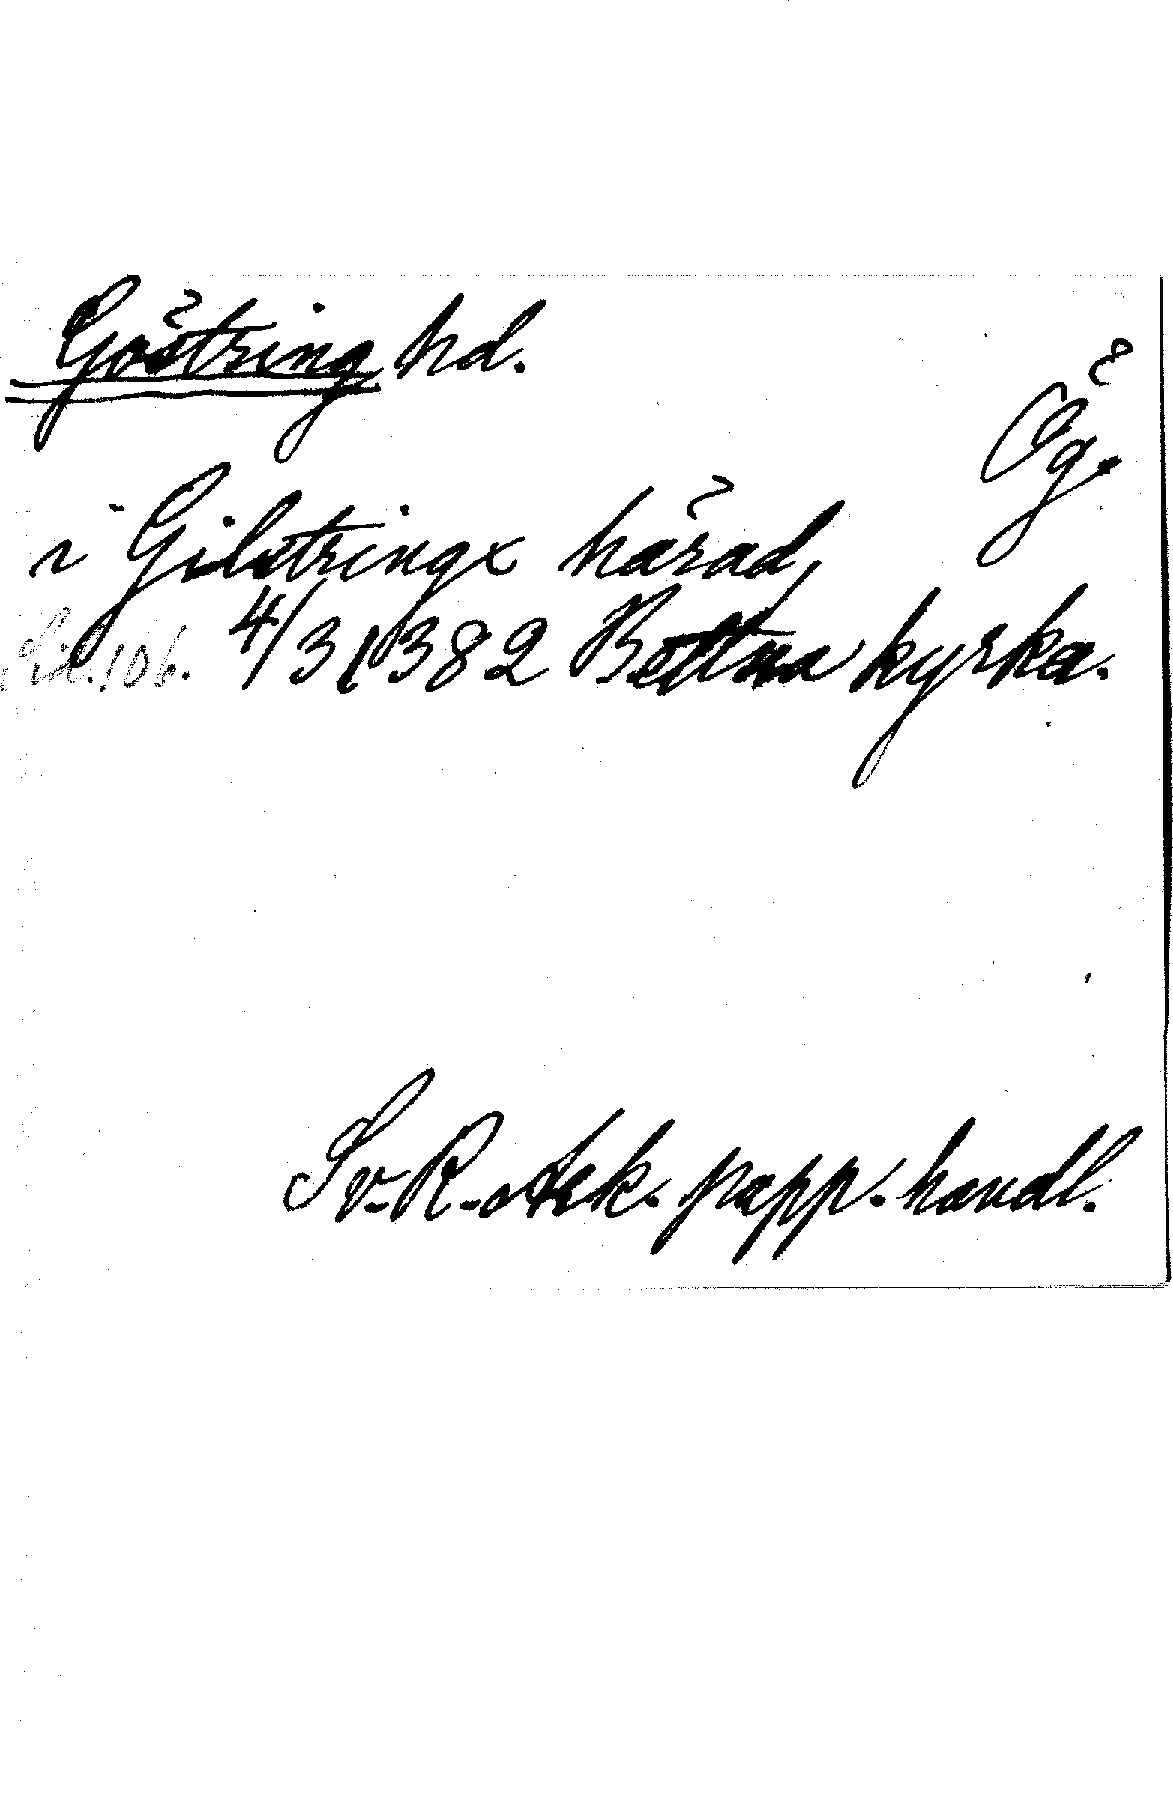 Göstring hd.
Ög.
i Gilstringx härad
106. 4/3 1382 Bettna kyrka.
Sv. R. Ark. papp. handl.